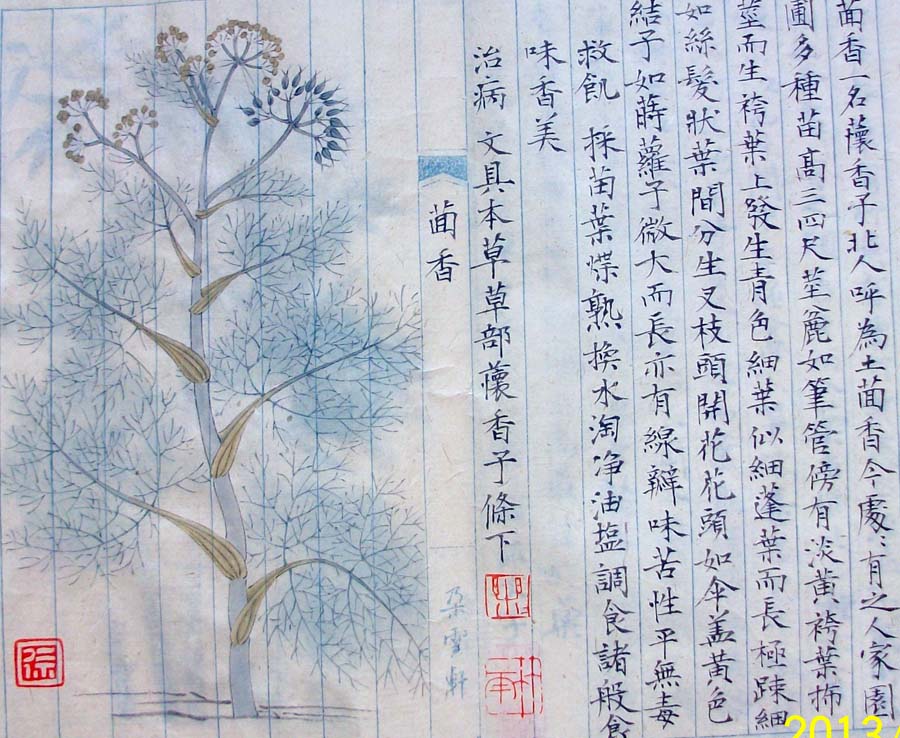 茴香一名蘹香子北人呼為土茴香今處〻有之人家園
圃多種苗高三四尺莖麄如筆管傍有淡黃袴葉抪
莖而生袴葉上發生青色細葉似細蓬葉而長極踈細
如絲髮狀葉間分生叉枝頭開花花頭如傘盖黃色
結子如蒔蘿子微大而長亦有線瓣味苦性平無毒
救飢 採苗葉煠熟換水淘净油塩調食諸般食
味香美
治病 文具本草草部蘹香子條下
茴香
朶雲軒
2013